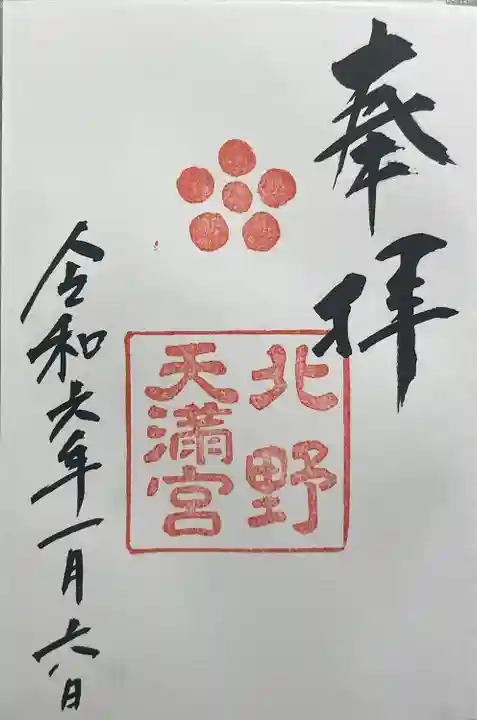 奉拝
北野
天満宮
令和六年一月六日